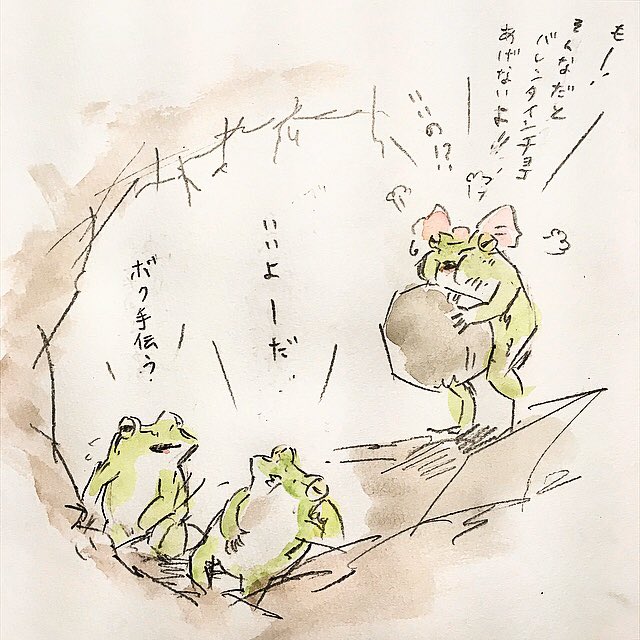 もー!!
そんなだと
バレンタインチョコ
あげないよ!!
いいの!?
いいよーだ
ボク手伝う?